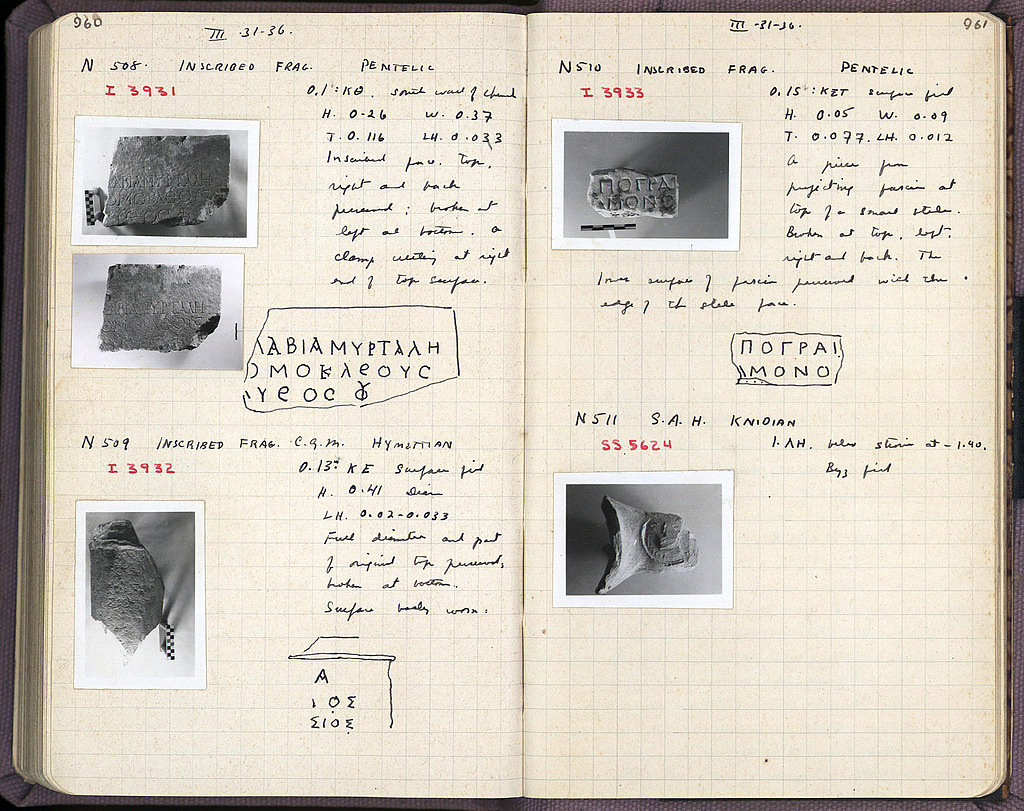 960
III - 31-36.
N 508. INSCRIBED FRAG. PENTELIC
I 3931
0.1 : ΚΘ. South wall of church
H. 0.26 W. 0.37
T. 0.116 LH. 0.033
Inscribed face. Top,
right and back
preserved; broken at
left and bottom. A
clamp cutting at right
end of top surface.
ΛΑΒΙΑΜΥΡΤΑΛΗ
ΟΜΟΚΛΕΟΥС
ΥΕΟС
N 509 INSCRIBED FRAG. C.G.M. HYMETTIAN
I 3932
0.13 ΚΕ Surface find
H. 0.41 Diam
LH. 0.02-0.033
Full diameter and part
of original top preserved;
broken at bottom.
Surface badly worn.
Α
ΙΟΣ
ΣΙΟΣ
961
III - 31-36.
N510 INSCRIBED FRAG. PENTELIC
I 3933
0.15 : surface find
H. 0.05 W. 0.09
T. 0.077. LH. 0.012
A piece from
projecting fascia at
top of a small stele.
Broken at top, left,
right and back. The
lower surface of fascia preserved with the
edge of the stele face.
ΠΟΓΡΑΙ
ΜΟΝΟ
N511 S.A.H. KNIDIAN
SS 5624
1. ΛΗ. below at -1.40.
Byz fill